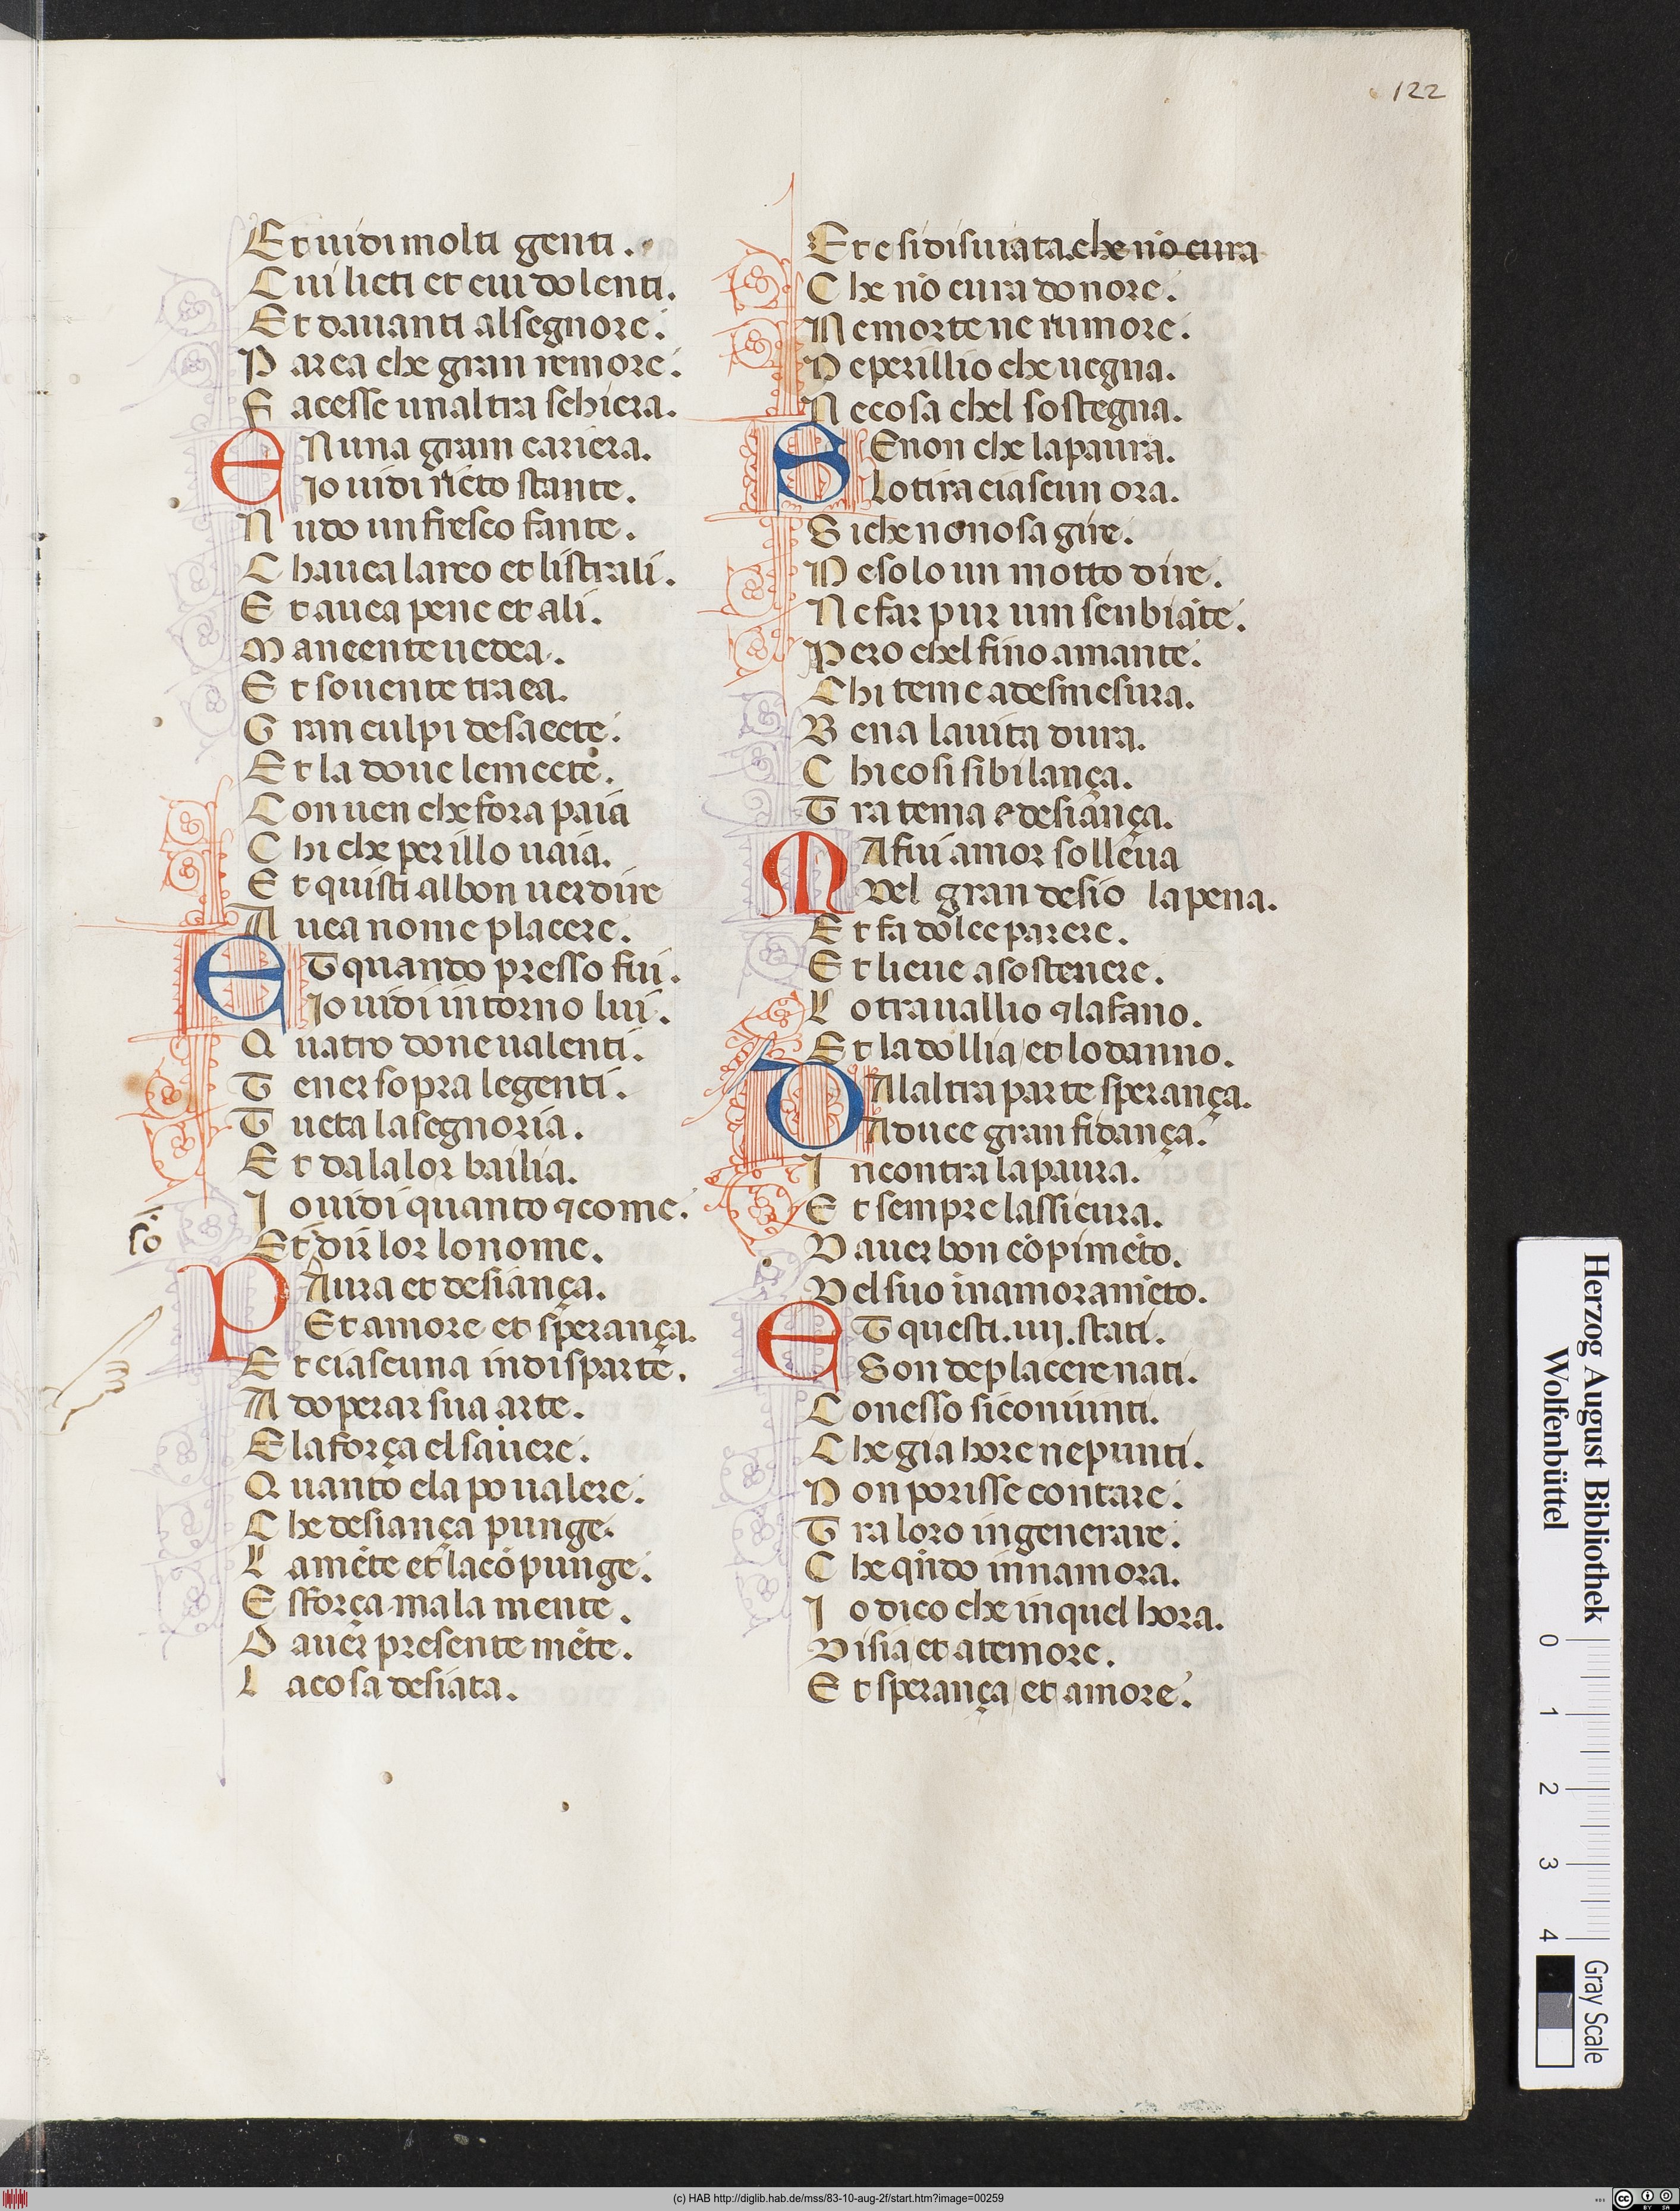 122
Et uidi molti genti.
Cui lieti et cui dolenti.
Et dauanti al segnore.
Parea che gran remore.
Facesse unaltra schiera.
ENuna gram cariera.
Io uidi ricto stante.
Nudo un fresco fante.
Chauea larco et li strali.
Et auea pene et ali.
Ma neente uedea.
Et souente traea.
Gran culpi de saecte.
Et la doue le mecte.
Conuen che fora paia
Chi che perillo uaia.
Et quisti al bon uer dire
Auea nome placere.
ET quando presso fui.
Io uidi intorno lui.
Quatro done ualenti.
Tener sopra le genti.
Tucta la segnoria.
Et da la lor bailia.
Io uidi quanto ⁊ come.
Et dir lor lo nome.
PAura et desiança.
Et amore et sperança.
Et ciascuna indisparte.
Adoperar sua arte.
E la força el sauere.
Quanto ela po ualere.
Che desiança punge.
La mēte et la cōpunge.
E sforça malamente.
Dauer presentemēte.
La cosa desiata.
Et e si disuiata che nō cura
Che nō cura donore.
Ne morte ne rumore.
Ne perillio che uegna.
Ne cosa chel sostegna.
SEnon che la paura.
Lo tira ciascun ora.
Si che non osa gire.
Ne solo un motto dire.
Ne far pur um senbiāte.
Pero chel fino amante.
Chi teme a desmesura.
Ben a la uita dura.
Chi cosi si bilança.
Tra tema e desiança.
MA fin amor solleua
Del gran desio la pena.
Et fa dolce parere.
Et lieue a sostenere.
Lo trauallio ⁊ lafano.
Et la dollia et lo danno.
DAlaltra parte sperança.
Aduce gran fidança.
Incontra la paura.
Et sempre lassicura.
Dauer bon cōpimēto.
Del suo inamoramēto.
ET questi .iiij. stati.
Son de placere nati.
Conesso si coniunti.
Che gia hore ne punti.
Non porisse contare.
Tra loro ingenerare.
Che qñdo innamora.
Io dico che in quel hora.
Disia et a temore.
Et sperança et amore.
Herzog August Bibliothek
Wolfenbüttel
0 1 2 3 4
Gray Scale
(c) HAB http://diglib.hab.de/mss/83-10-aug-2f/start.htm?image=00259